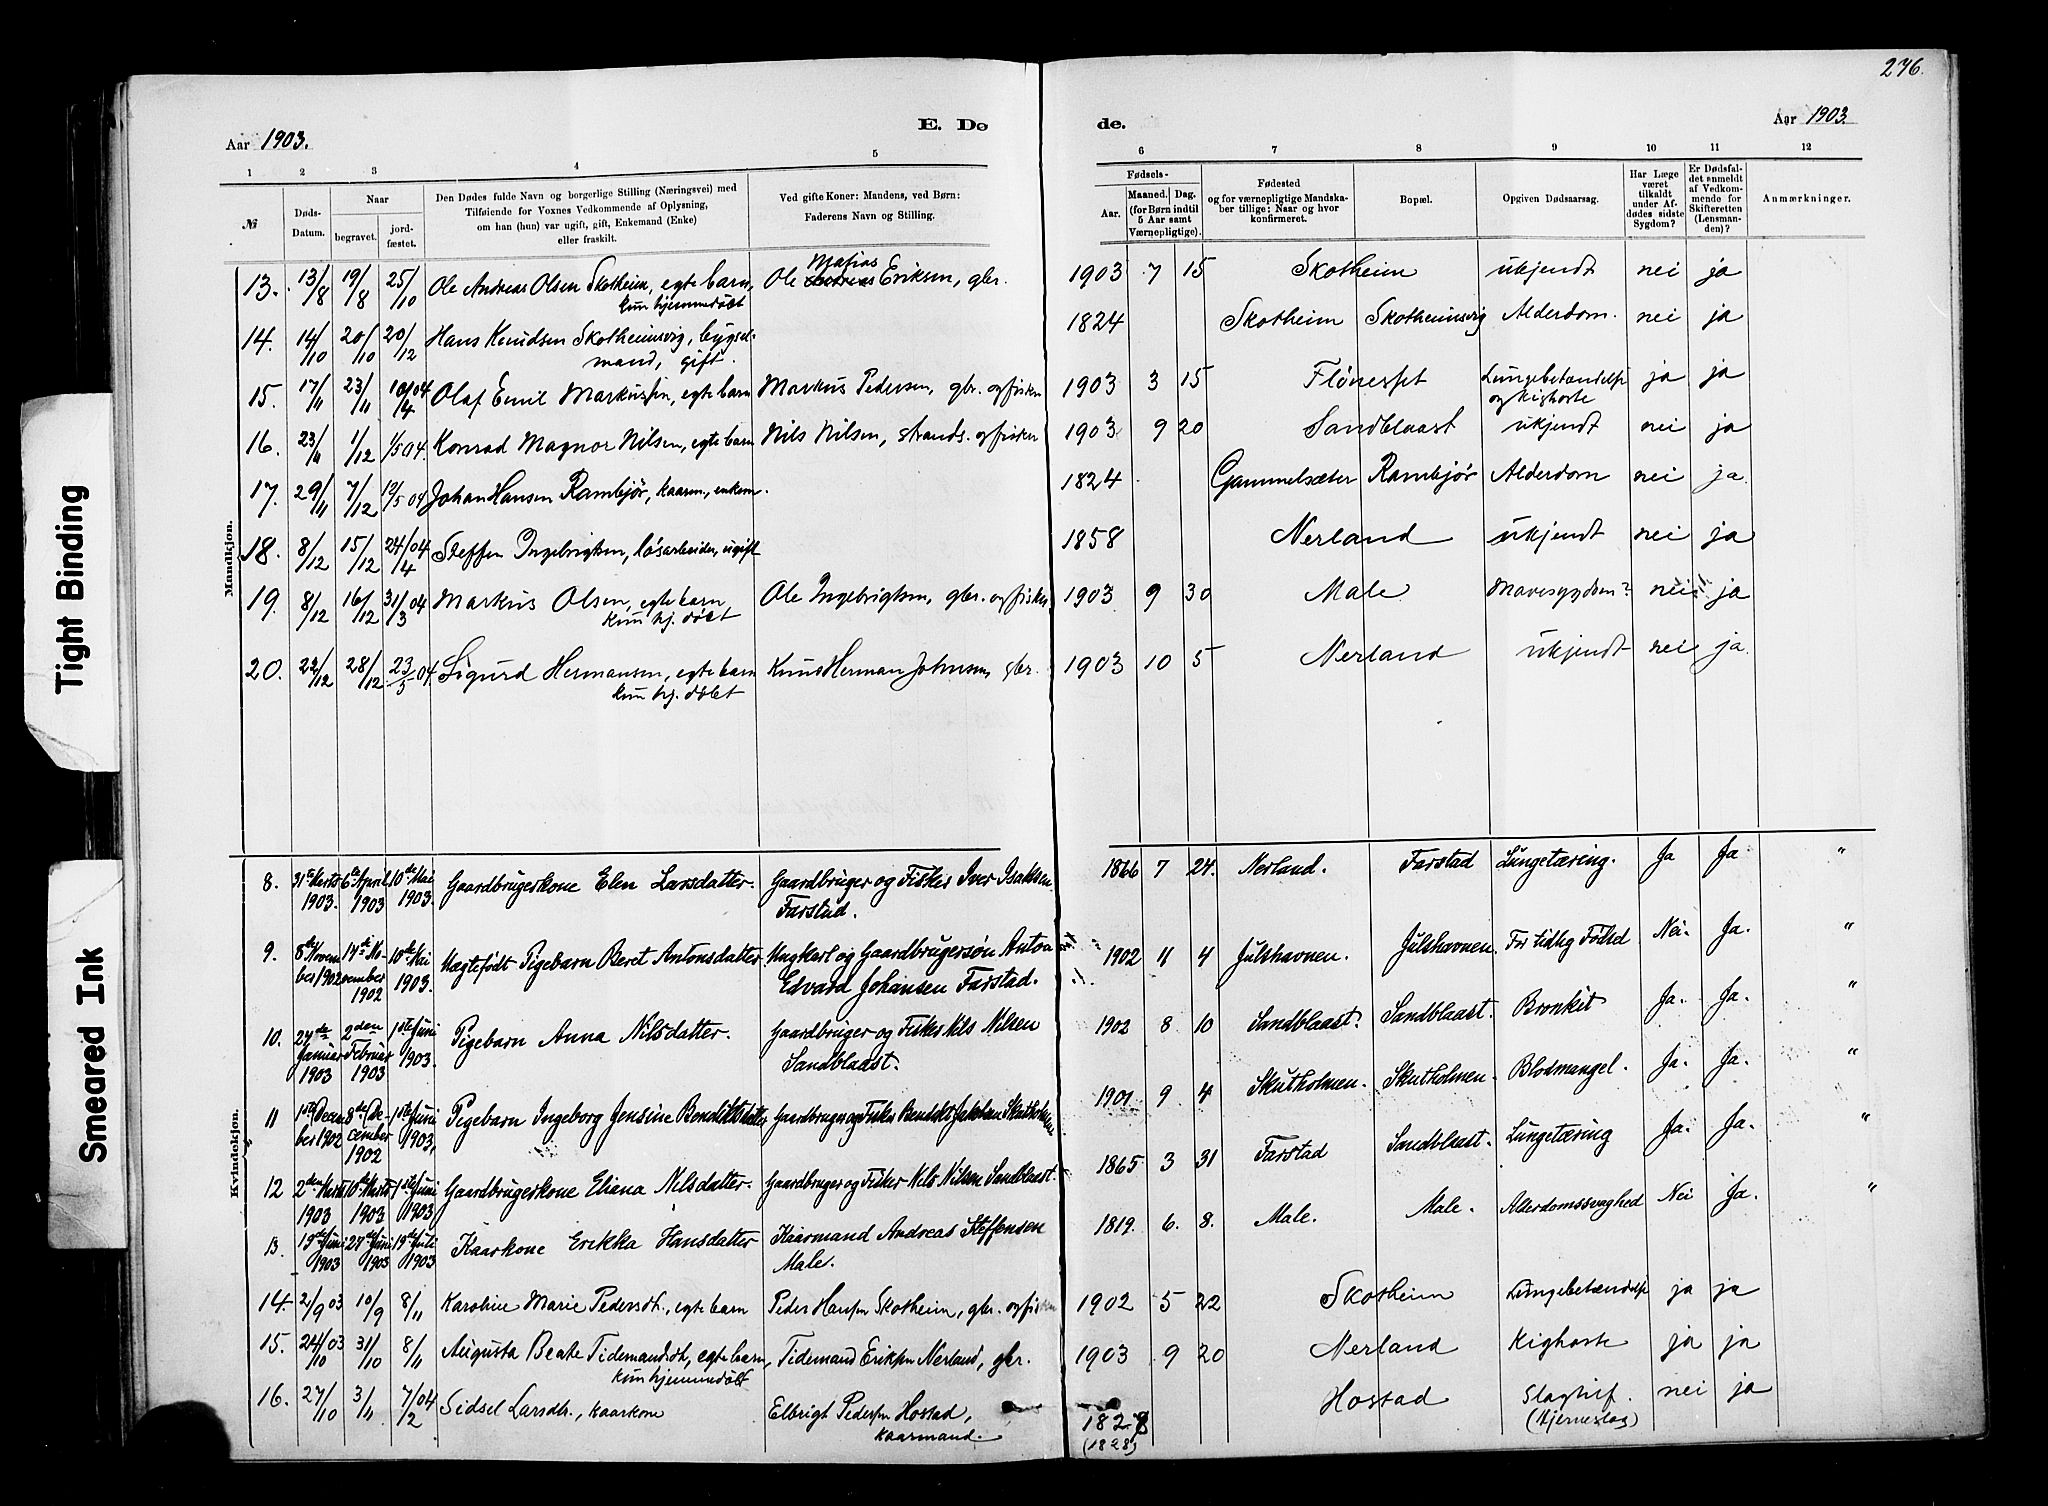 276.
Aar 1903.
E. Dø
de.
Aar 1903.
1 2 3 4 5 6 7 8 9 10 11 12
№
Døds-Datum.
Naar
begravet.
jord-fæstet.
Den Dødes fulde Navn og borgerlige Stilling (Næringsvei) med
Tilføiende for Voxnes Vedkommende af Oplysning,
om han (hun) var ugift, gift, Enkemand (Enke)
eller fraskilt.
Ved gifte Koner: Mandens, ved Børn:
Faderens Navn og Stilling.
Fødsels-
Aar.
Maaned. Dag.
(for Børn indtil
5 Aar samt
Værnepligtige).
Fødested
og for værnepligtige Mandska-
ber tillige: Naar og hvor
konfirmeret.
Bopæl.
Opgiven Dødsaarsag.
Har Læge
været
tilkaldt
under Af-
dødes sidste
Sygdom?
Er Dødsfal-
det anmeldt
af Vedkom-
mende for
Skifteretten
(Lensman-
den)?
Anmærkninger.
Mandkjøn.
13. 13/8 19/8 25/10 Ole Andreas Olsen Skotheim, egte barn, Ole Matias Eriksen, gbr. 1903 7 15 Skotheim ukjendt nei ja
kun hjemmedøbt
14. 14/10 20/10 20/12 Hans Knudsen Skotheimsvig, bygsel- 1824 Skotheim Skotheimsvig Alderdom. nei ja
mand, gift.
15. 17/11 23/11 10/4 04 Olaf Emil Markussen, egte barn Markus Pedersen, gbr. og fisker 1903 3 15 Flönesset Lungebetændelse ja ja
og kighoste
16. 23/11 1/12 1/5 04. Konrad Magnor Nilsen, egte barn Nils Nilsen, strands. og fisker 1903 9 20 Sandblaast ukjendt nei ja
17. 29/11 7/12 12/5 04 Johan Hansen Rambjør, kaarm, enkem. 1824 Gammelsæter Rambjør Alderdom nei ja.
18. 8/12 15/12 24/4 04 Steffen Ingebrigtsen, løsarbeider, ugift 1858 Nerland ukjendt nei ja
19. 8/12 16/12 31/3 04 Markus Olsen, egte barn Ole Ingebrigtsen, gbr. og fisker 1903 9 30 Male Mavesygdom? nei ja
kun hj. døbt
20. 22/12 28/12 23/5 04. Sigurd Hermansen, egte barn Knut Herman Johnsen, gbr. 1903 10 5 Nerland ukjendt nei ja.
kun hj. døbt
Kvindekjøn.
8. 31te Marts 1903. 6te April 1903 10de Mai 1903. Gaardbrugerkone Elen Larsdatter. Gaardbruger og Fisker Iver Isaksen 1866 7 24. Nerland. Farstad Lungetæring. Ja Ja "
Farstad.
9. 8de November 1902 14de November 1902 10de Mai 1903. Uægtefødt Pigebarn Beret Antonsdatter. Ungkarl og Gaardbrugersøn Anton 1902 11 4 Julshavnen. Julshavnen. For tidlig Fødsel Nei. Ja. "
Edvard Johansen Farstad.
10. 27de Januar 1903 2den Februar 1903 1ste Juni 1903. Pigebarn Anna Nilsdatter. Gaardbruger og Fisker Nils Nilsen 1902 8 10 Sandblaast. Sandblaast. Bronkit Ja. Ja. "
Sandblaast.
11 1ste December 1902 8de December 1902 1ste Juni 1903, Pigebarn Ingeborg Jensine Benediktsdatter Gaardbruger og Fisker Benedikt Jakobsen Skutholmen 1901 9 4 Skutholmen. Skutholmen. Blodmangel. Ja. Ja. "
12 2den Marts 1903 10de Marts 1903 1ste Juni 1903 Gaardbrugerkone Eliana Nilsdatter. Gaardbruger og Fisker Nils Nilsen Sandblaast. 1865 3 31 Farstad Sandblaast. Lungetæring Ja. Ja. "
13. 19de Juni 1903 27de Juni 1903 19de Juli 1903 Kaarkone Erikka Hansdatter Kaarmand Andreas Steffensen 1819. 6. 8. Male. Male. Alderdomssvaghed Nei Ja. "
Male.
14. 2/9 03 10/9 8/11 Karoline Marie Pedersdt., egte barn Peder Hansen Skotheim, gbr. og fisker 1902 5 22 Skotheim Lungebetændelse ja ja
15. 24/10 03 31/10 8/11 Augusta Beate Tidemandsdt, egte barn, Tidemand Eriksen Nerland, gbr. 1903 9 20 Nerland Kighoste ja ja
kun hjemmedøbt
16. 27/10 3/11 7/2 04 Sidsel Larsdtr., kaarkone Elbrigt Pedersen Hostad, 1828 Hostad Slagtilf. nei ja
kaarmand. (1828) (Hjerneslag)
Tight Binding
Smeared Ink